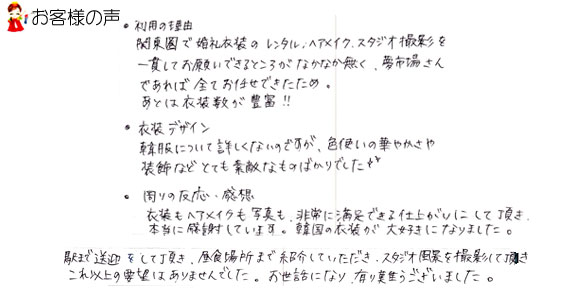 お客様の声
• 利用の理由
関東圏で婚礼衣装のレンタル、ヘアメイク、スタジオ撮影を
一貫してお願いできるところがなかなか無く、夢市場さん
であれば全てお任せできたため。
あとは衣装数が豊富!!
• 衣装デザイン
韓服について詳しくないのですが、色使いの華やかさや
装飾などとても素敵なものばかりでした
• 周りの反応・感想
衣装もヘアメイクも写真も、非常に満足できる仕上がりにして頂き、
本当に感謝しています。韓国の衣装が大好きになりました。
駅まで送迎をして頂き、昼食場所まで紹介していただき、スタジオ風景を撮影して頂き
これ以上の要望はありませんでした。お世話になり、有り難うございました。